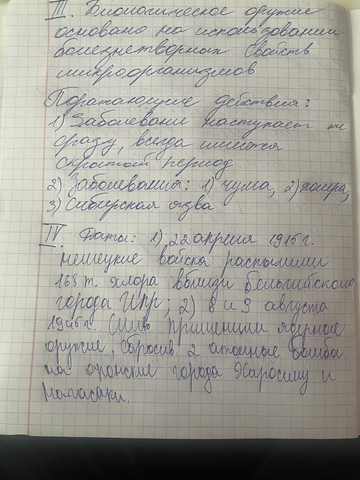 III. Биологическое оружие
основано на использовании
болезнетворных свойств
микроорганизмов
Поражающие действия:
1) Заболевание наступает не
сразу, всегда имеется
скрытый период
2) Заболевания: 1) чума, 2) холера,
3) Сибирская язва
IV. Даты: 1) 22 апреля 1915 г.
немецкие войска распылили
168 т. хлора вблизи бельгийского
города Ипр; 2) 6 и 9 августа
1945г. США применили ядерное
оружие, сбросив 2 атомные бомбы
на японские города Хиросиму и
Нагасаки.